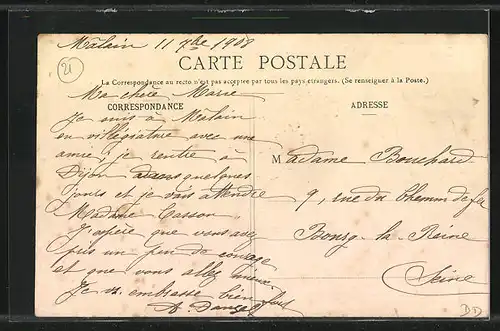 Mâlain 11 7bre 1908
21
CARTE POSTALE
La Correspondance au recto n'est pas acceptée par tous les pays étrangers. (Se renseigner à la Poste.)
Ma chère Marie
CORRESPONDANCE
Je suis à Mâlain
en villégiature avec une
amie, je rentre à
Dijon dans quelques
jours et je vais attendre
Madame Casson
J'espère que vous avez
pris un peu de courage
et que vous allez mieux
Je v. embrasse bien fort
A.
ADRESSE
Madame Bouchard
9, rue du Chemin de fer
Bourg-la-Reine
Seine